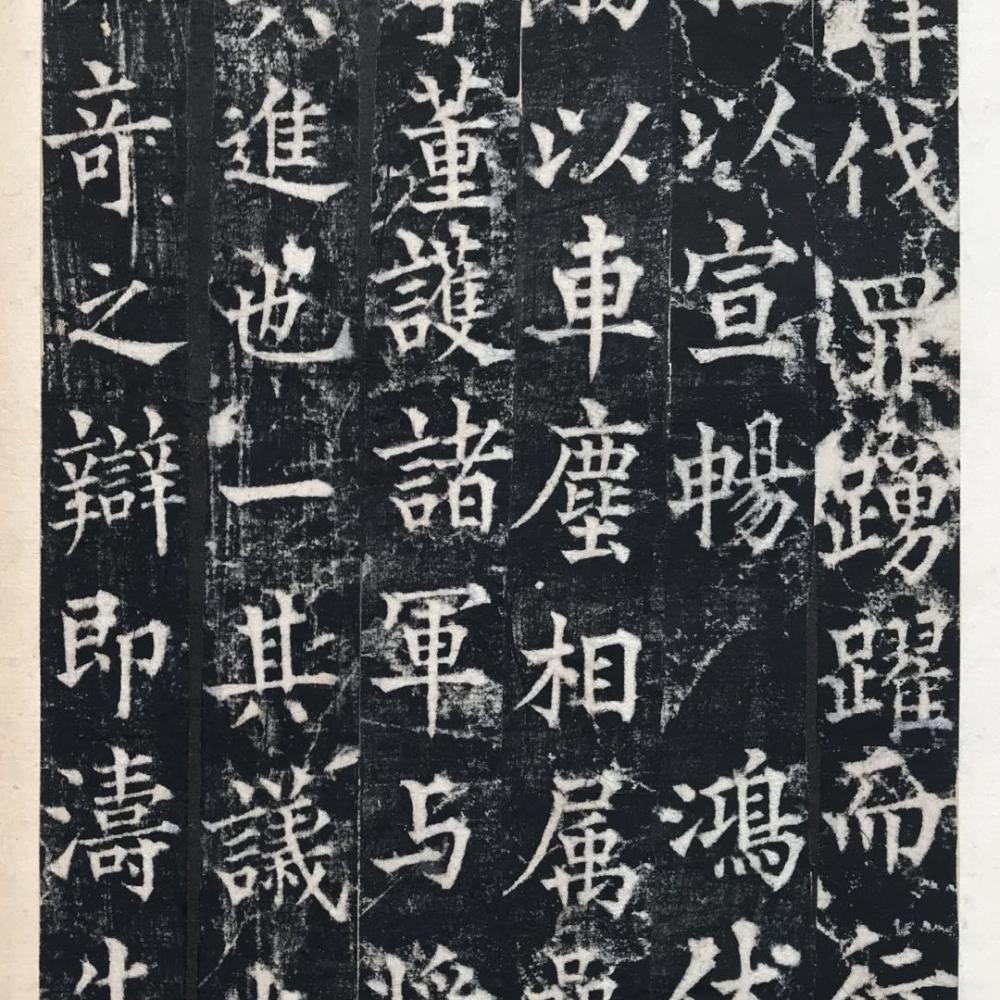 伐罪踴躍而
以宣暢鴻
以車塵相属
董護諸軍与
進也一其議
奇之辯即濤